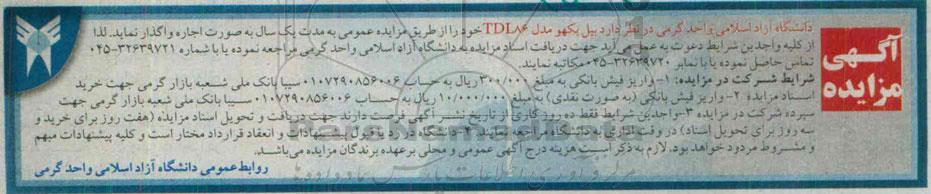 آگهی
مزایده
دانشگاه آزاد اسلامی واحد گرمی در نظر دارد بیل پکهو مدل TDL86 خود را از طریق مزایده عمومی به مدت یک سال به صورت اجاره واگذار نماید. لذا
از کلیه واجدین شرایط دعوت به عمل می‌آید جهت دریافت اسناد مزایده به دانشگاه آزاد اسلامی واحد گرمی مراجعه نموده یا با شماره ۳۲۶۳۹۷۲۱-۰۴۵
تماس حاصل نموده یا با نمابر ۳۲۶۳۹۷۲۰-۰۴۵ مکاتبه نمایند.
شرایط شرکت در مزایده: ۱- واریز فیش بانکی به مبلغ ۳۰۰/۰۰۰ ریال به حساب ۰۱۰۷۲۹۰۸۵۶۰۰۶ سیبا بانک ملی شعبه بازار گرمی جهت خرید
اسناد مزایده ۲- واریز فیش بانکی (به صورت نقدی) به مبلغ ۱۰/۰۰۰/۰۰۰ ریال به حساب ۰۱۰۷۲۹۰۸۵۶۰۰۶ سیبا بانک ملی شعبه بازار گرمی جهت
سپرده شرکت در مزایده ۳- واجدین شرایط فقط ده روز کاری از تاریخ نشر آگهی فرصت دارند جهت دریافت و تحویل اسناد مزایده (هفت روز برای خرید و
سه روز برای تحویل اسناد) در وقت اداری به دانشگاه مراجعه نمایند ۴- دانشگاه در رد یا قبول پیشنهادات و انعقاد قرارداد مختار است و کلیه پیشنهادات مبهم
و مشروط مردود خواهد بود. لازم به ذکر است هزینه درج آگهی عمومی و محلی بر عهده برندگان مزایده می‌باشد.
روابط عمومی دانشگاه آزاد اسلامی واحد گرمی